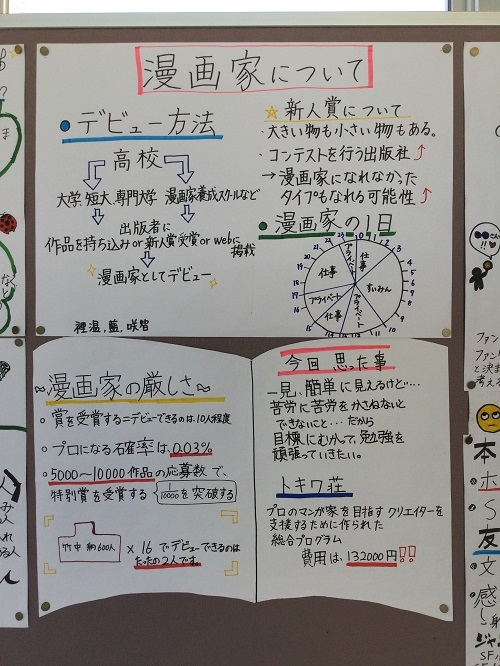 漫画家について
●デビュー方法
高校
大学,短大,専門大学 漫画家養成スクールなど
出版者に
作品を持ち込みor新人賞受賞or webに
掲載
漫画家としてデビュー
☆新人賞について
・大きい物も小さい物もある。
・コンテストを行う出版社↑
→漫画家になれなかった
タイプもなれる可能性↑
●漫画家の1日
プライベート
仕事
すいみん
プライベート
仕事
プライベート
仕事
~漫画家の厳しさ~
・賞を受賞する=デビューできるのは10人程度
・プロになる確率は0.03%
・5000~10000作品の応募数で、
特別賞を受賞する 1/10000を突破する
竹中 約600人 ×16でデビューできるのは
たったの2人です。
今回思った事
一見、簡単に見えるけど…
苦労に苦労をかさねないと
できないこと…だから
目標にむかって、勉強を
頑張っていきたい。
トキワ荘
プロのマンガ家を目指すクリエイターを
支援するために作られた
総合プログラム
費用は、132000円!!
本
ホ
S
友
文
感